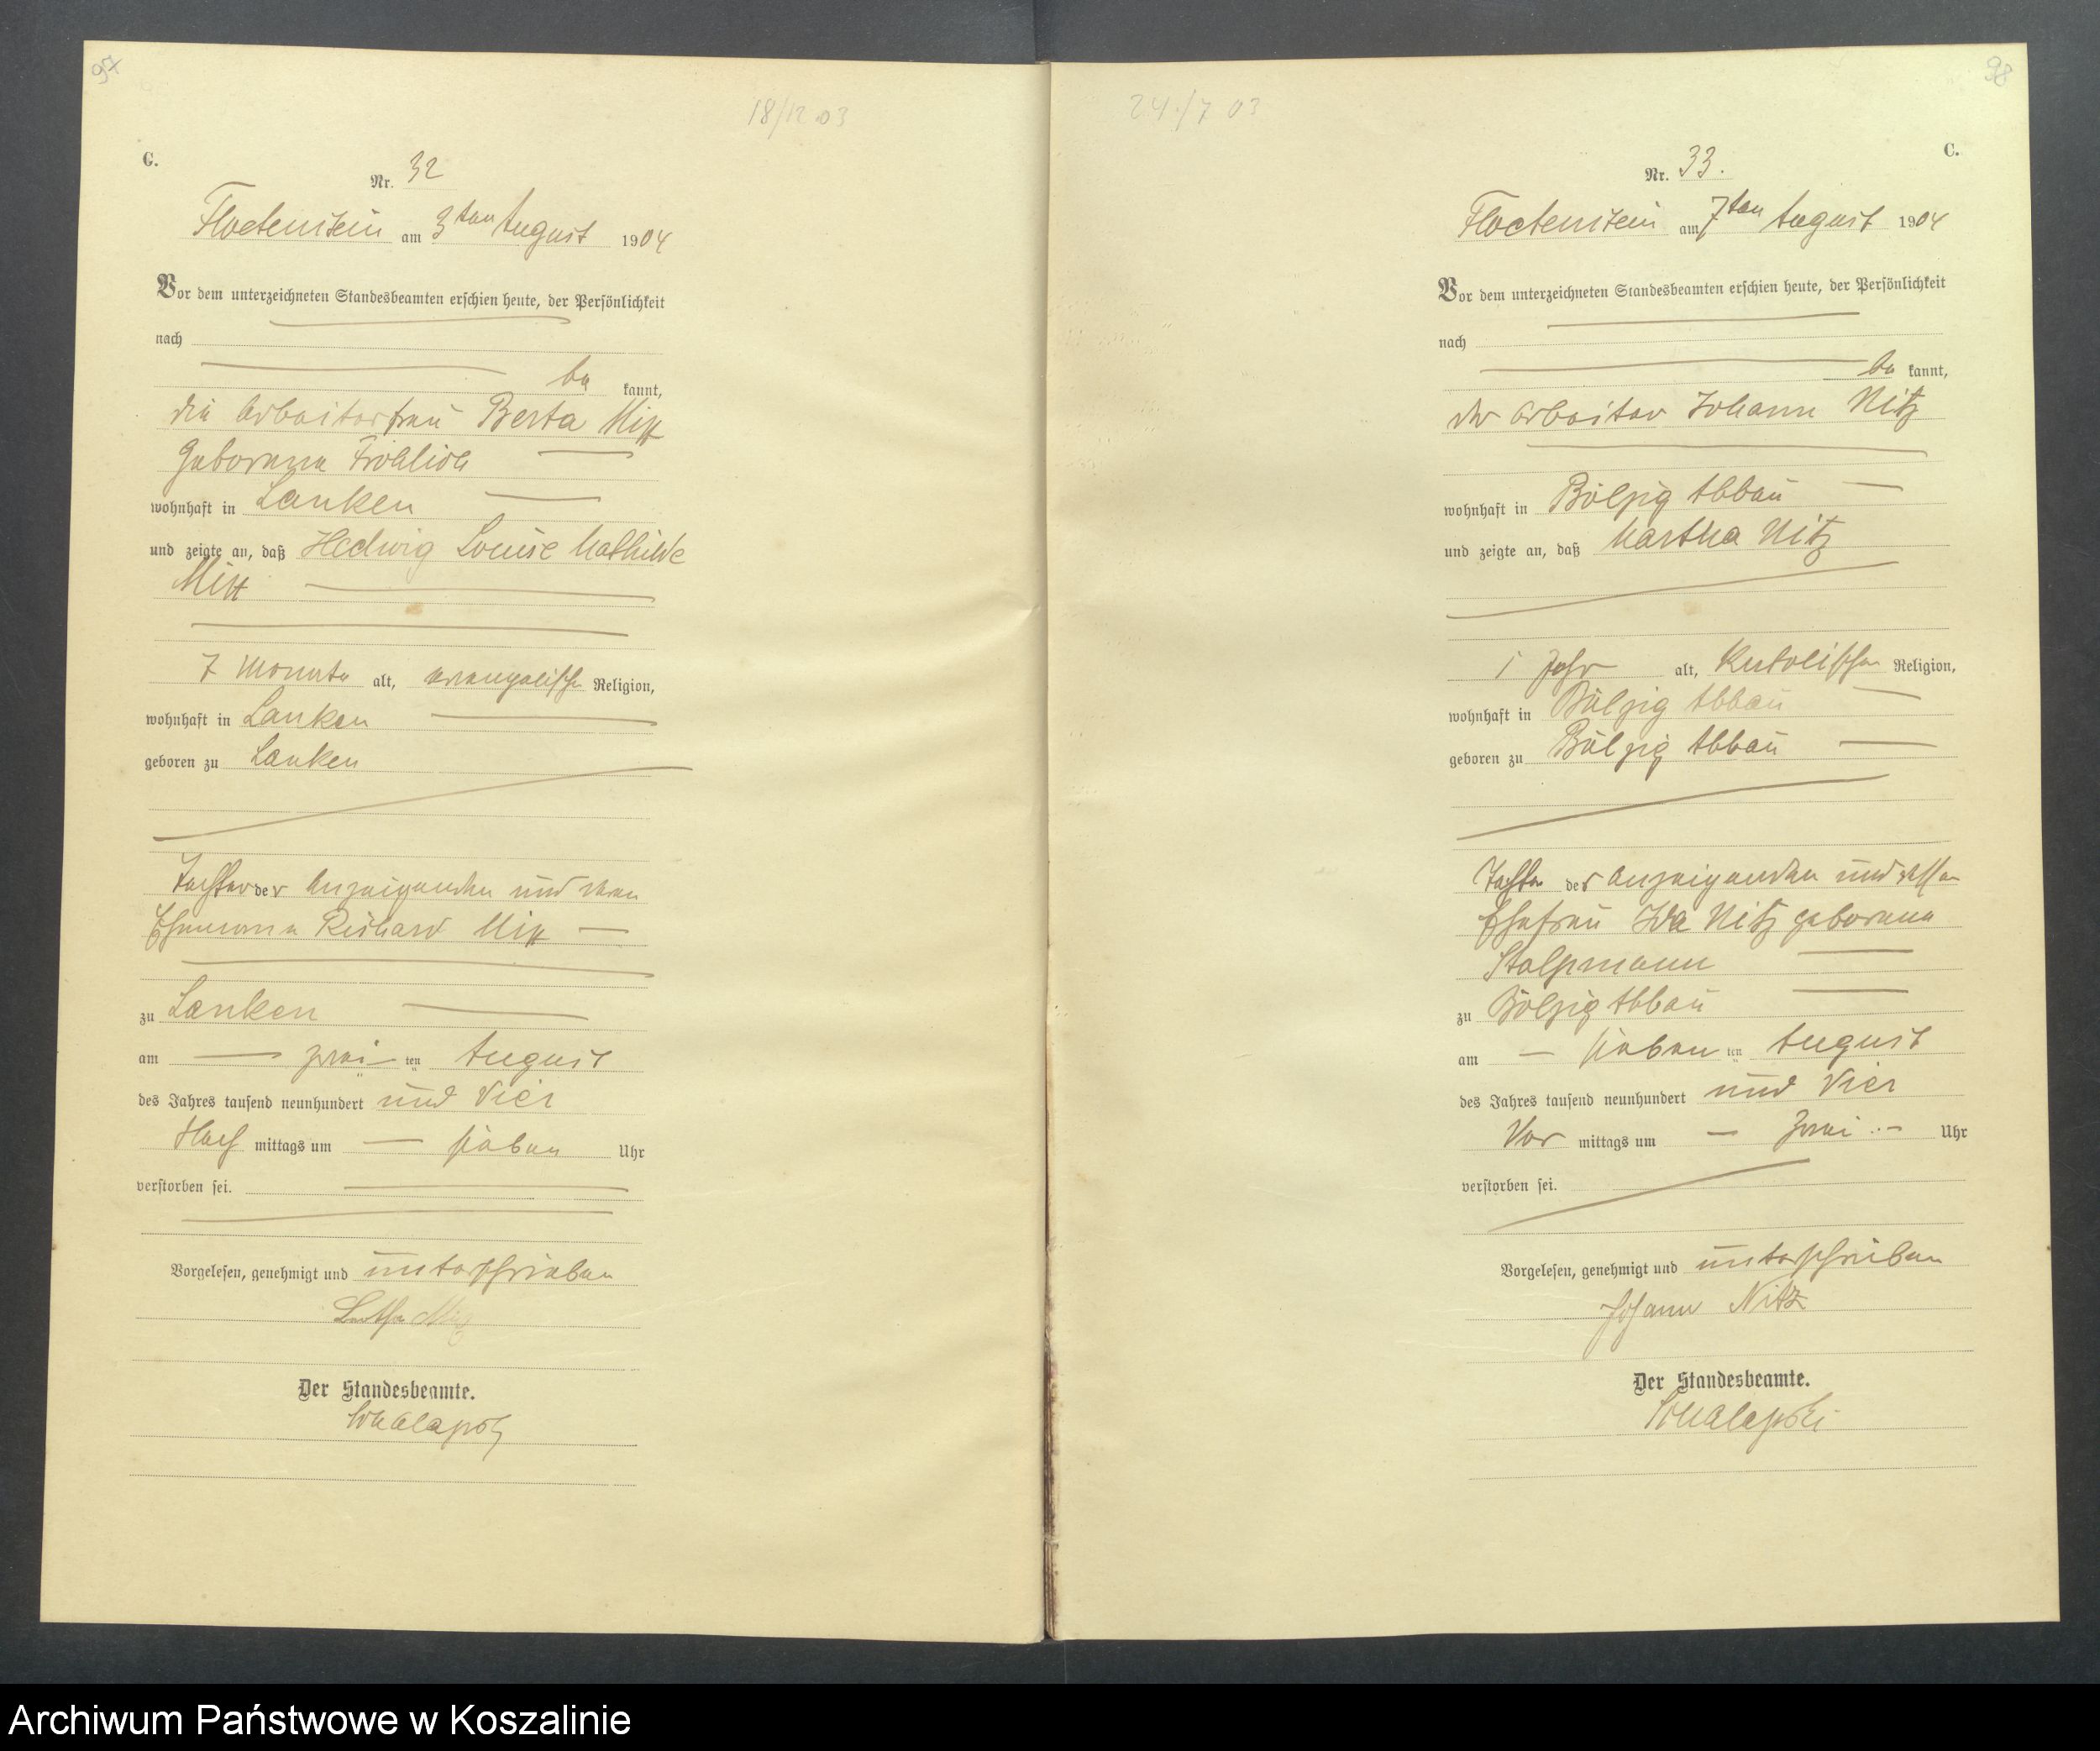 97
18/12 03
C.
Nr. 32
Floetenstein am 3ten August 1904
Vor dem unterzeichneten Standesbeamten erschien heute, der Persönlichkeit
nach
be kannt,
die Arbeiterfrau Berta
geborene Fröhlich
wohnhaft in Lanken
und zeigte an, daß Hedwig Louise Mathilde
7 Monate alt, evangelischer Religion,
wohnhaft in Lanken
geboren zu Lanken
Tochter der Anzeigenden und deren
Ehemann Richard
zu Lanken
am zwei ten August
des Jahres tausend neunhundert und vier
Nach mittags um sieben Uhr
verstorben sei.
Vorgelesen, genehmigt und unterschrieben
Der Standesbeamte.
98
24/7 03
C.
Nr. 33.
Floetenstein am 7ten August 1904
Vor dem unterzeichneten Standesbeamten erschien heute, der Persönlichkeit
nach
be kannt,
der Arbeiter Johann Nitz
wohnhaft in Bölzig Abbau
und zeigte an, daß Martha Nitz
1 Jahr alt, katolischer Religion,
wohnhaft in Bölzig Abbau
geboren zu Bölzig Abbau
Tochter des Anzeigenden und dessen
Ehefrau Ida Nitz geborene
Stolpmann
zu Bölzig Abbau
am sieben ten August
des Jahres tausend neunhundert und vier
Vor mittags um zwei Uhr
verstorben sei.
Vorgelesen, genehmigt und unterschrieben
Johann Nitz
Der Standesbeamte.
Archiwum Państwowe w Koszalinie